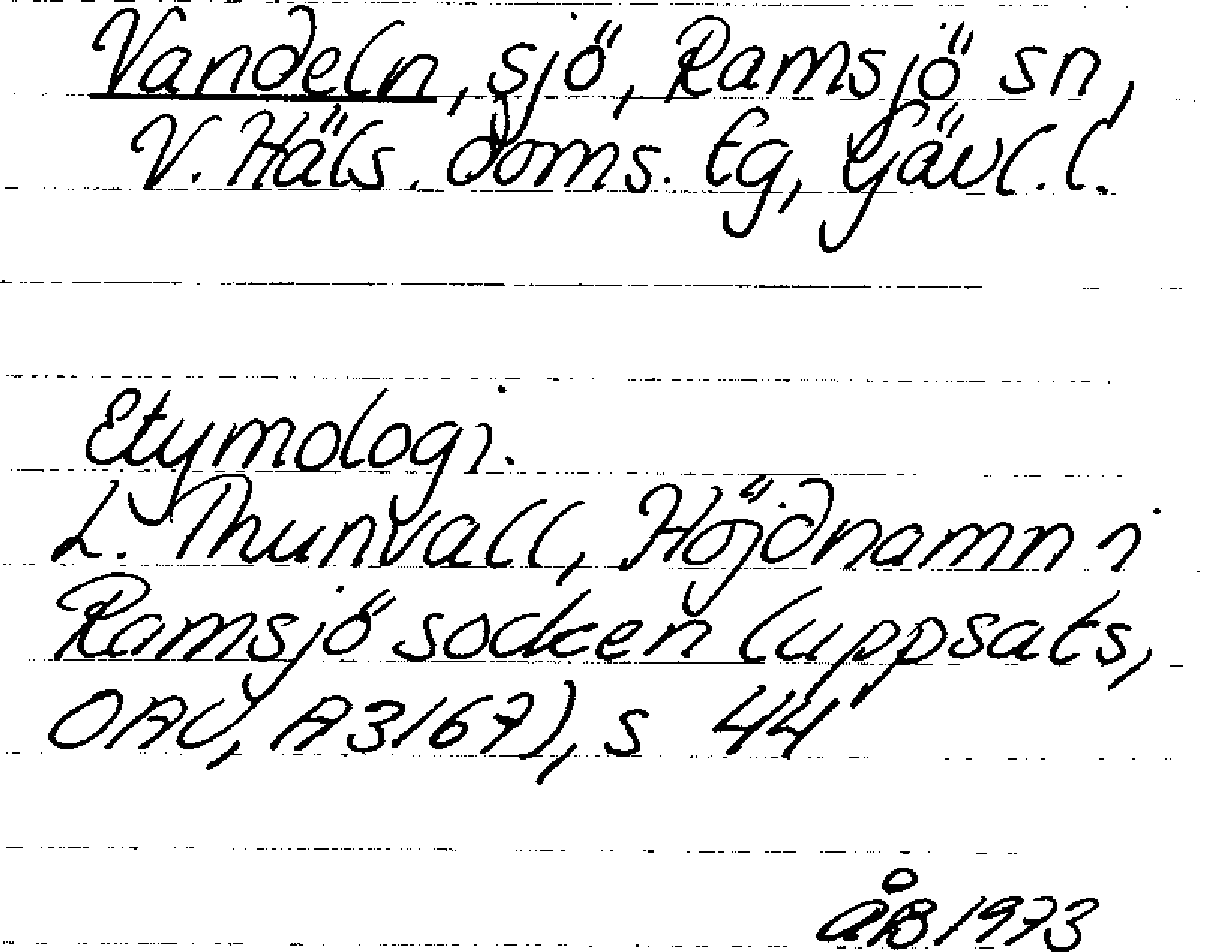 Vandeln, sjö, Ramsjö sn,
V. Häls. doms. tg, Gävl. l.
Etymologi.
L. Thunvall, Höjdnamn i
Ramsjö socken (uppsats,
OAU, A3167), s 44
ÅB 1973